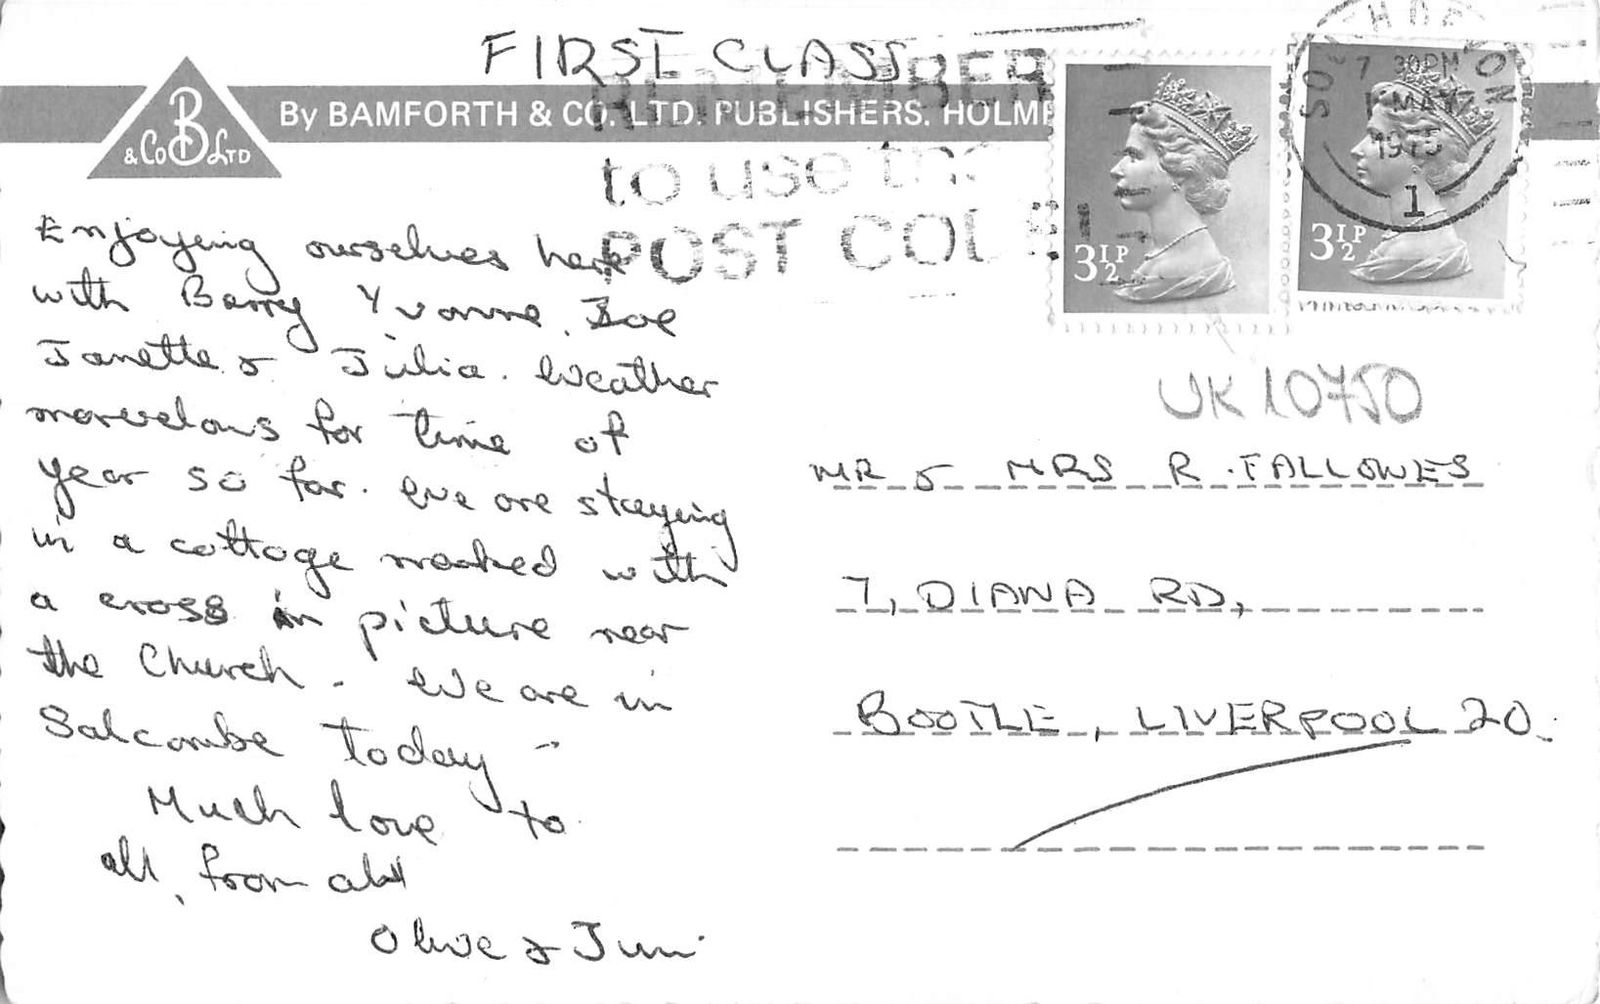 FIRST CLASS
REMEMBER
to use the
POST CODE
B
& Co LTD
By BAMFORTH & CO. LTD. PUBLISHERS. HOLMF
SOUTH DEVON
7 30PM
1 MAY
1975
1
3½P
3½P
UK 10750
Enjoying ourselves here
with Barry Yvonne, Zoe
Janette & Julia. Weather
marvelous for time of
year so far. We are staying
in a cottage marked with
a cross in picture near
the Church. We are in
Salcombe today -
Much love to
all, from all
Olive & Jim
MR & MRS R. FALLOWES
7, DIANA RD,
BOOTLE, LIVERPOOL 20.